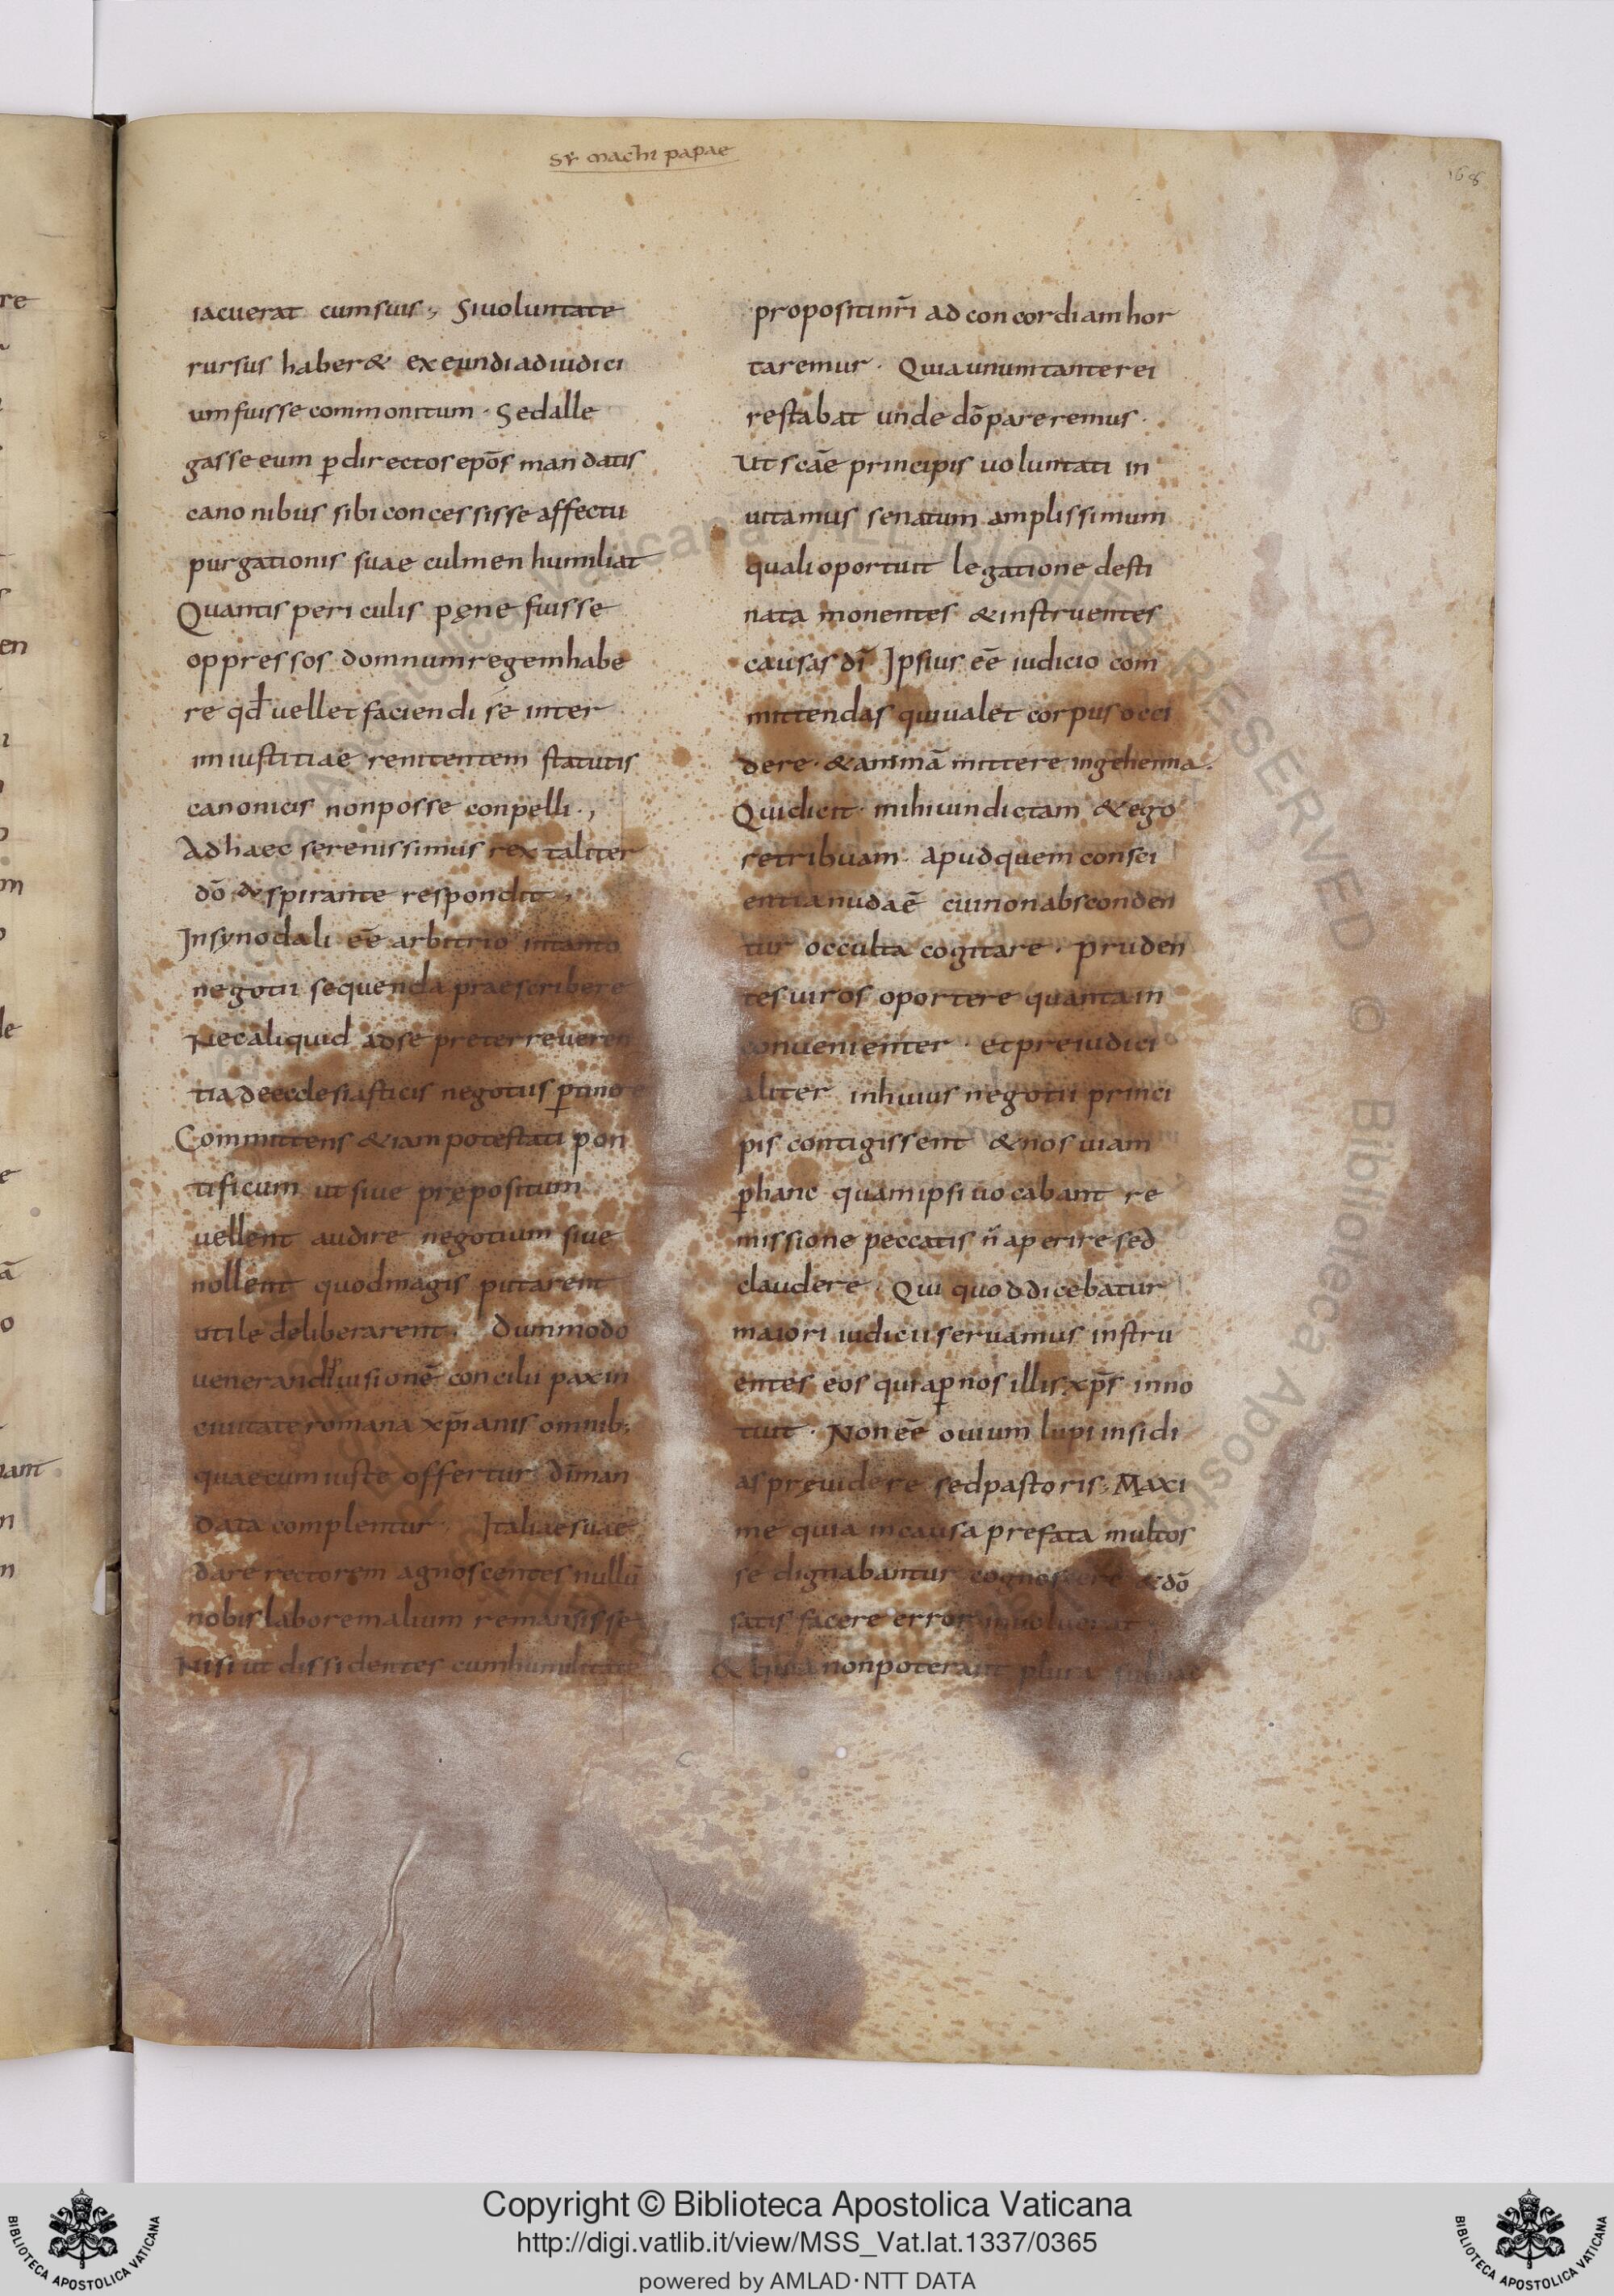 sȳmachi papae
168
iacuerat cum suis; Si uoluntate
rursus haber& exeundi ad iudici
um fuisse commonitum · Sed alle
gasse eum p̄ directos ep̄os mandatis
canonibus sibi concessisse affectu
purgationis suae culmen humiliat
Quantis periculis pęne fuisse
oppressos domnum regem habe
re qd̄ uellet faciendi se inter
im iustitiae renitentem statutis
canonicis non posse conpelli ·;
Ad haec serenissimus rex taliter
dō despirante respondit;
In synodali eē arbitrio intanto
negotii sequenda praescribere
Nec aliquid ad se preter reueren
tia de ecclesiasticis negotiis p̄tinere
Committens & iam potestati pon
tificum ut siue prępositum
uellent audire negotium siue
nollent quod magis putarent
utile deliberarent. Dummodo
uenerandi uisionē concilii pax in
ciuitate romana xp̄ianis omnib;
quaecum iuste offertur dīman
data complentur. Italiae suae
dare rectorem agnoscentes nullū
nobis laborem alium remansisse
Nisi ut dissidentes cum humilitate
propositi nr̄i ad concordiam hor
taremur · Quia unum tante rei
restabat unde dō pareremus ·
Ut scāe principis uoluntati in
uitamus senatum amplissimum
quali oportuit legatione desti
nata monentes & instruentes
causas dī Ipsius eē iudicio com
mittendas qui ualet corpus occi
dere · & animā mittere in gehenna.
Qui dicit · mihi uindictam & ego
retribuam · apud quem consci
entia nuda ē cui non absconden
tur occulta cogitare · pruden
tes uiros oportere quanta in
conuenienter · et preiudici
aliter in huius negotii princi
pis contigissent & nos uiam
p̄ hanc quam ipsi uocabant re
missione peccatis n̄ aperire sed
claudere · Qui quod dicebatur
maiori iudicii seruamus instru
entes eos quia p̄ nos illis xp̄s inno
tuit · Non eē ouium lupi insidi
as pręuidere sed pastoris · Maxi
me quia in causa prefata multos
se dignabantur cognoscere & dō
satis facere error inuoluerat
& quia non poterant plura sub hac
Copyright © Biblioteca Apostolica Vaticana
http://digi.vatlib.it/view/MSS_Vat.lat.1337/0365
powered by AMLAD·NTT DATA
BIBLIOTECA APOSTOLICA VATICANA
BIBLIOTECA APOSTOLICA VATICANA